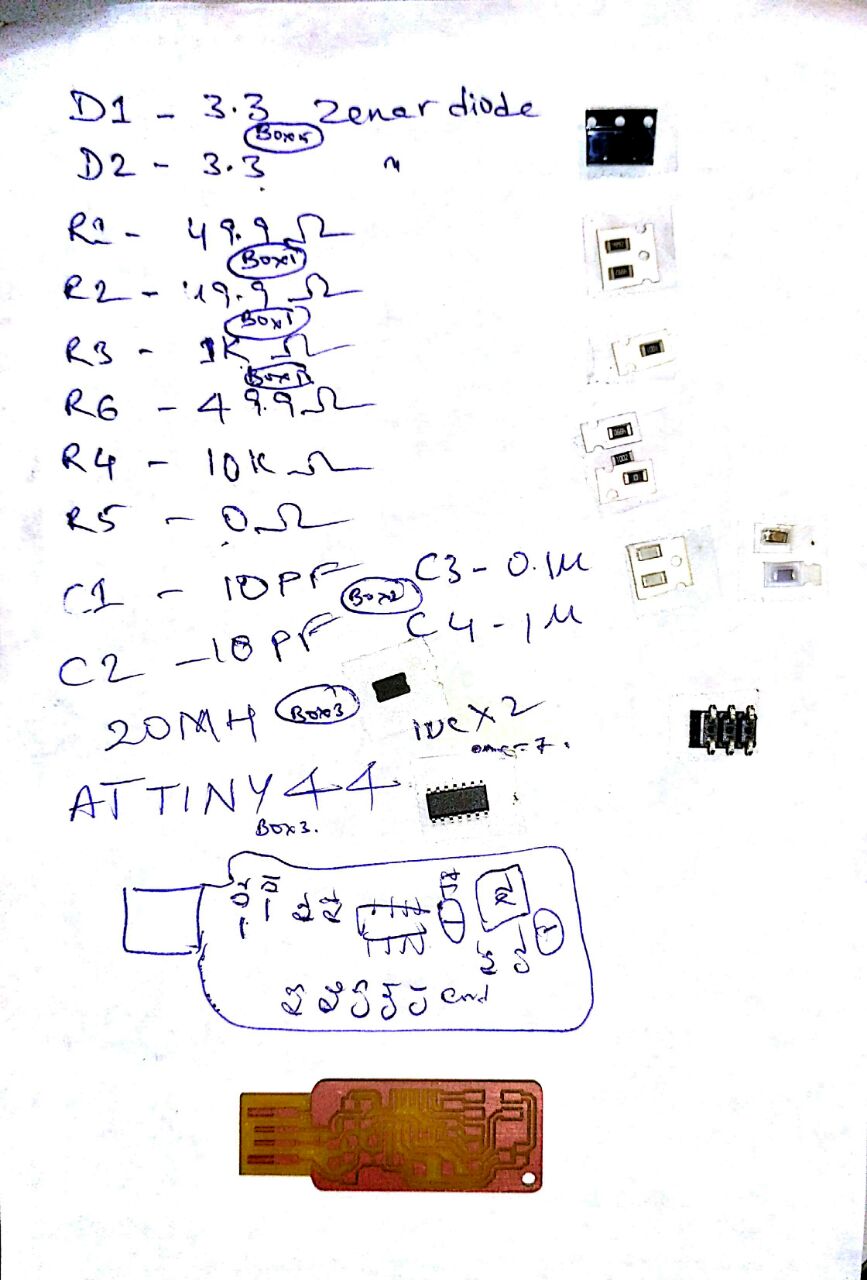 D1 - 3.3 Zenar diode
D2 - 3.3 "
R1 - 49.9 Ω
Box1
R2 - 49.9 Ω
Box1
R3 - 1K Ω
R6 - 49.9 Ω
R4 - 10K Ω
R5 - 0 Ω
C1 - 10PF Box2 C3 - 0.1M
C2 - 10PF C4 - 1M
20MH Box3
ATTINY44
Box3.